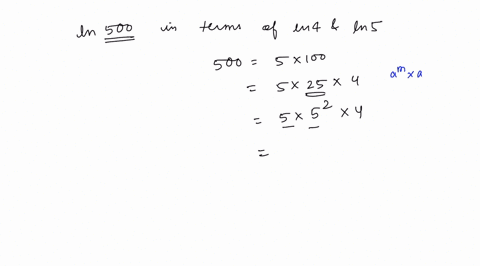 ln 500 in terms of ln4 & ln5
500 = 5 × 100
= 5 × 25 × 4
a^m × a
= 5 × 5² × 4
=